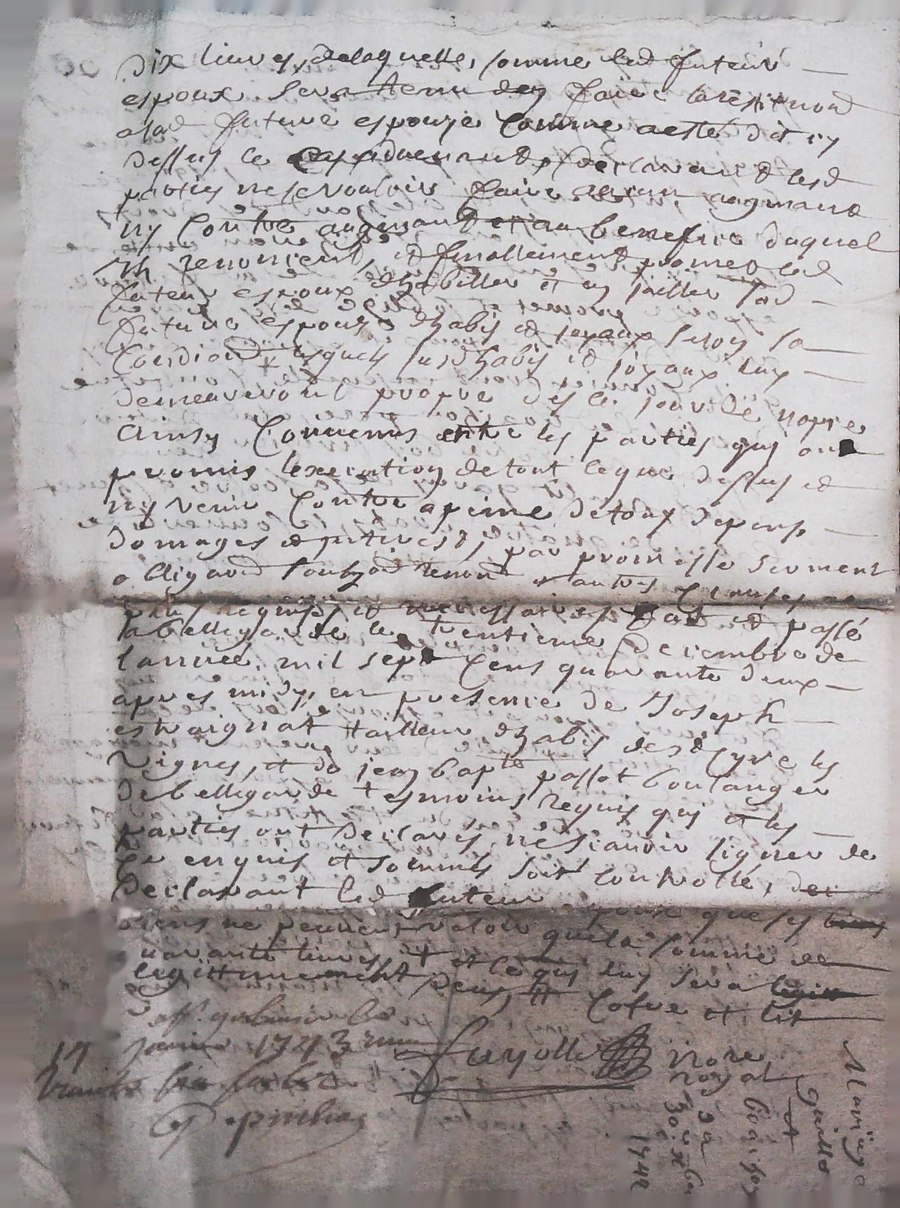 dix livres, delaquelle, somme led futeur
espoux sera tenu den faire la restitution
alad future espouze comme a esté dit cy
dessus le cas advenant, declarant lesd
parties ne se vouloir faire aucun augmant
ny contre augmant et au benefice duquel
ils renoncent, et finallement promet led
futeur espoux dhabiller et en joailler sad
future espouse dhabis et joyaux selon sa
condition lesquels susd habis et joyaux luy
demeureront propre des le jour de nopces
ainsy convenus entre les parties qui ont
promis lexecution de tout ceque dessus et
ny venir contre a peine de tous depens
domages et interests, par promesse serment
obligation soubz renon et autres clauses
plus requises et necessaires fait et passé
a bellegarde le trentieme decembre de
lannée mil sept cens quarante deux
apres midy, en presence de Joseph
estraignat tailleur dhabis de st Cyre les
vignes, et de jean bapte passot boulanger
de bellegarde tesmoins requis qui et les
parties ont declarés ne scavoir signer de
ce enquis et sommés soit controllé, 
declarant led futeur
espoux que ses biens
ne peuvent valoir que la somme de
quarante livres et ce qui luy sera
legittimement deub, cofre et lit
17 janvier 1743
Fayolle
no.re
royal
Mariage
30
xbre
1742